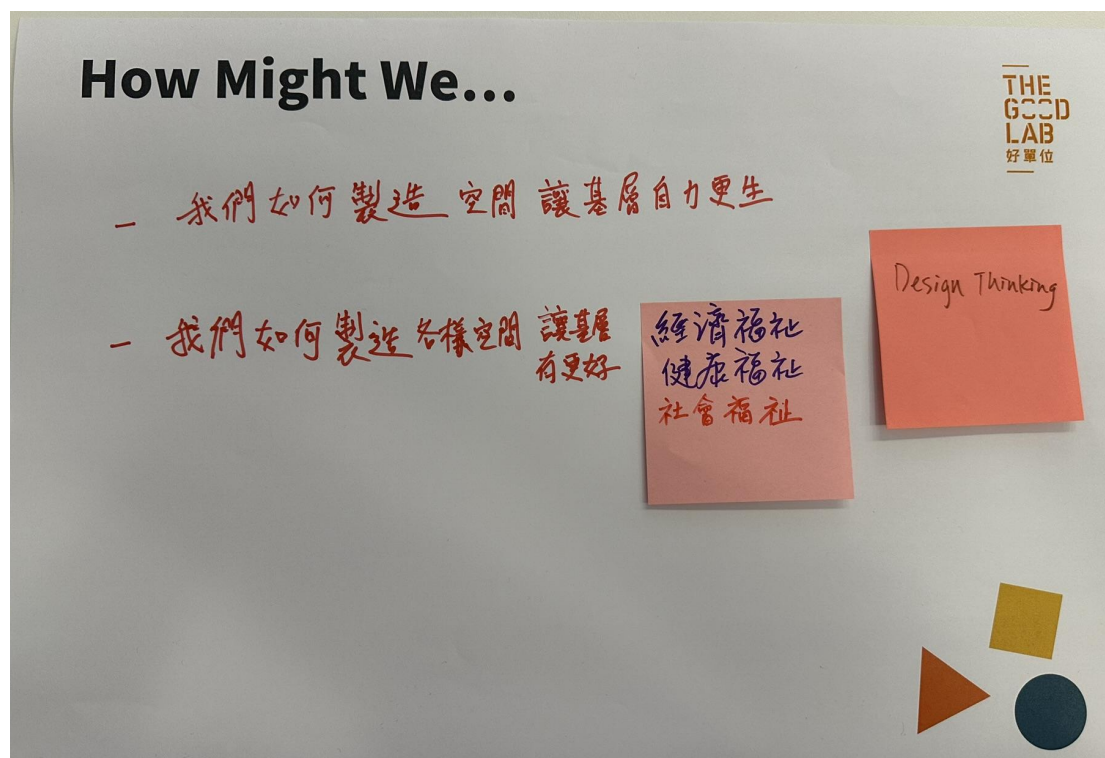 How Might We...
THE
GOOD
LAB
好單位
– 我們如何製造空間讓基層自力更生
– 我們如何製造各樣空間讓基層
有更好
經濟福祉
健康福祉
社會福祉
Design Thinking